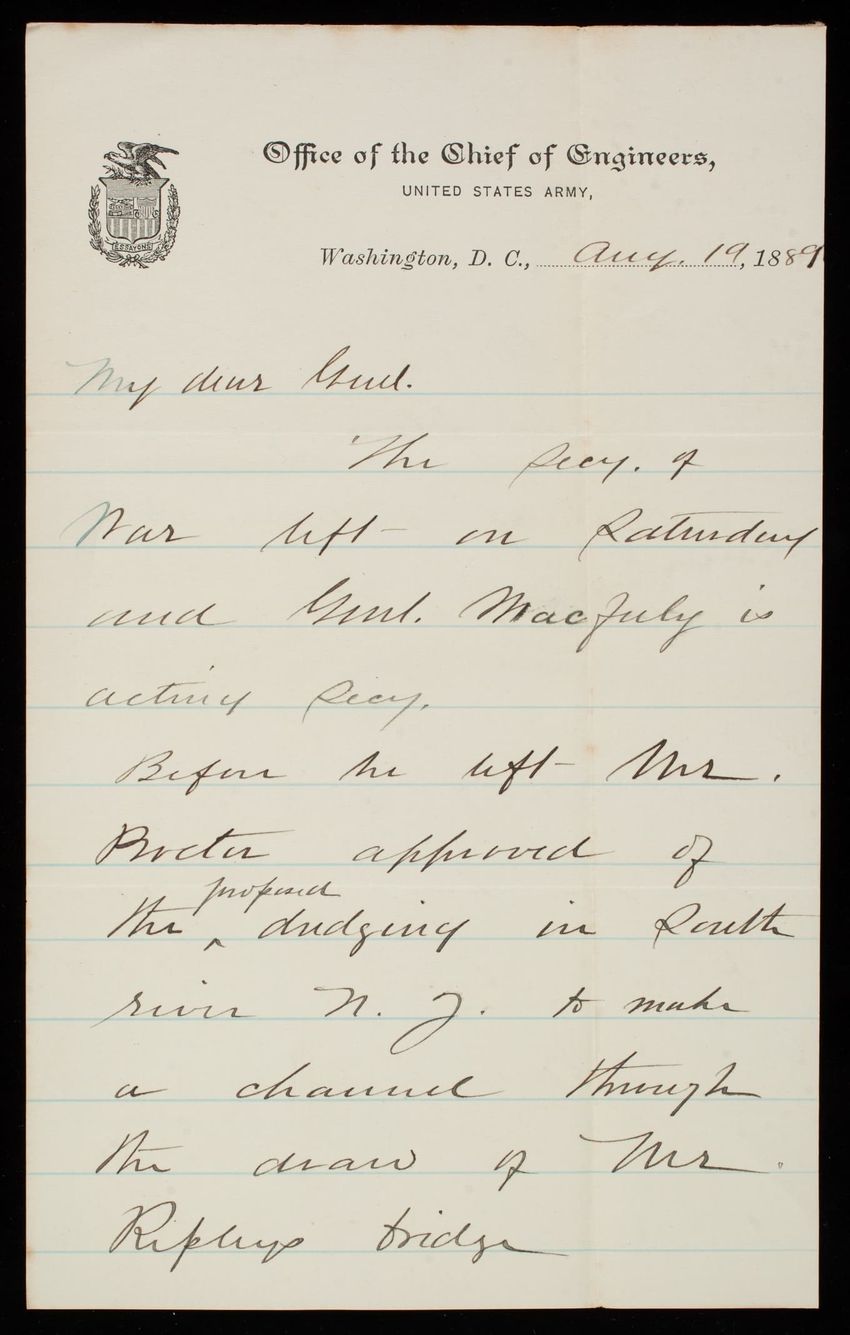 Office of the Chief of Engineers,
UNITED STATES ARMY,
ESSAYONS
Washington, D. C., Aug. 19, 1889
My dear Genl.
The Secy. of
War left on Saturday
and Genl. Macfuly is
acting Secy.
Before he left Mr.
Proctor approved of
proposed
the ^ dredging in South
river N. J. to make
a channel through
the draw of Mr.
Ripleys bridge